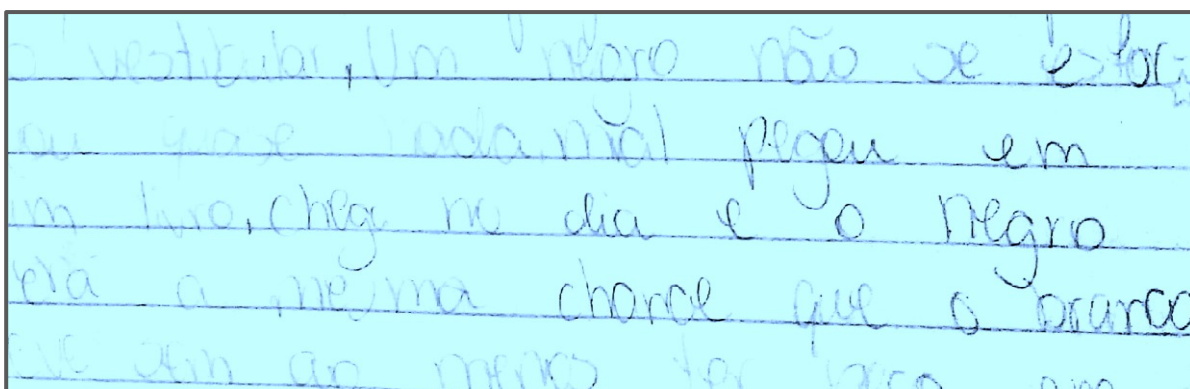 o vestibular, Um negro não se esforç
ou quase nada, mal pegou em
um livro, chega no dia e o negro
erá a mesma chance que o branco
sem ao menos ter